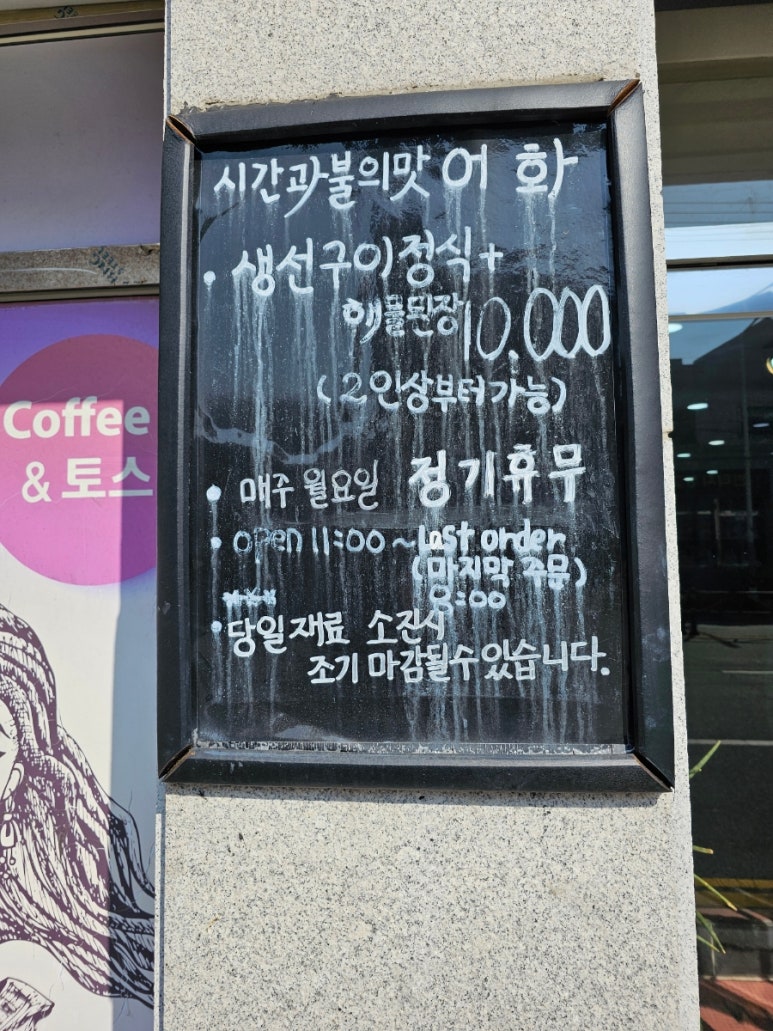 시간과불의맛 어화
• 생선구이정식 +
해물된장 10.000
(2인상부터가능)
• 매주 월요일 정기휴무
• open 11:00 ~ last order
(마지막 주문)
8:00
***
• 당일재료 소진시
조기 마감될수있습니다.
Coffee
& 토스